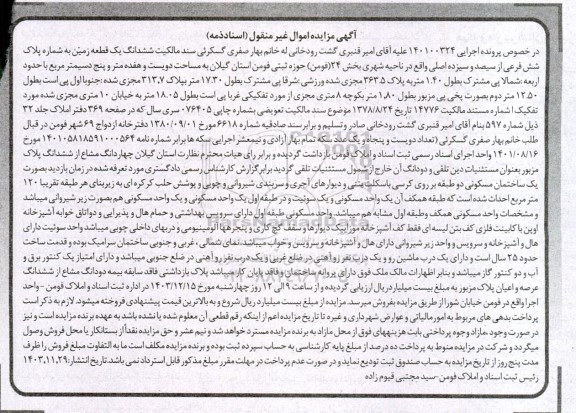 آگهی مزایده اموال غیر منقول (اسناد ذمه)
در خصوص پرونده اجرایی ۱۴۰۱۰۰۳۲۴ علیه آقای امیر قنبری گشت رودخانی له خانم بهار صفری گسکرئی سند مالکیت ششدانگ یک قطعه زمین به شماره پلاک
شش فرعی از سیصد و سیزده اصلی واقع در ناحیه شهری بخش ۲۴ (فومن) حوزه ثبتی فومن استان گیلان به مساحت دویست و هفده متر و پنج دسیمتر مربع با حدود
اربعه: شمالا پی مشترک بطول ۱.۴۰ متر به پلاک ۳۶۳.۵ مجزی شده وزرشی :شرقا پی مشترک بطول ۱۷.۳۰ متر بپلاک ۳۱۳.۷ مجزی شده :جنوبا اول پی است بطول
۱۲.۵۰ متر دوم بصورت پخی پی مزبور بطول ۱.۸۰ متر بکوچه ۸ متری مجزی از مورد تفکیکی غربا پی است بطول ۱۸.۰۵ متر به خیابان ۱۰ متری مجزی شده مورد
تفکیک! شماره مستند مالکیت ۱۴۷۷۶ تاریخ ۱۳۷۸/۸/۲۴ موضوع سند مالکیت تعویضی بشماره چاپی ۰۷۶۴۰۵ سری سال که در صفحه ۳۶۹ دفتر املاک جلد ۳۲
ذیل شماره ۵۹۷ بنام آقای امیر قنبری گشت رودخانی صادر و تسلیم و برابر سند صداقیه شماره ۶۶۱۸ مورخ ۱۳۸۰/۰۹/۰۱ دفترخانه ازدواج ۶۹ شهر فومن در قبال
طلب خانم بهار صفری گسکرئی (تعداد دویست و پنجاه و یک عدد سکه تمام بهار آزادی و نیمعشر اجرایی سکه ها برابر شماره نامه ۱۴۰۱۰۵۸۱۸۵۹۱۰۰۰۵۶۴ مورخ
۱۴۰۱/۰۸/۱۶ واحد اجرای اسناد رسمی ثبت اسناد و املاک فومن بازداشت گردیده و برابر رای هیات محترم نظارت استان گیلان چهاردانگ مشاع از ششدانگ پلاک
مزبور بعنوان مستثنیات دین تلقی و دودانگ آن خارج از شمول مستثنیات تلقی گردید برابر گزارش کارشناس رسمی دادگستری مورد تعرفه شده در زمان بازدید بصورت
یک ساختمان مسکونی دو طبقه بر روی کرسی باسکلت بتنی و دیوارهای آجری و سربندی شیروانی و چوبی و پوشش حلب کرکره ای به زیربنای هر طبقه تقریبا ۱۲۰
متر مربع احداث شده است که طبقه همکف آن یک واحد مسکونی و یک سوئیت و در طبقه اول یک واحد مسکونی و یک واحد مسکونی هم بصورت زیر شیروانی میباشد
و مشخصات واحد مسکونی همکف و طبقه اول مشابه هم میباشد. واحد مسکونی طبقه اول دارای سرویس بهداشتی و حمام هال و پذیرایی و دو اتاق خواب آشپزخانه
اوپن با کابینت فلزی کف بتن لیسه ای فقط کف آشپزخانه موزاییک دیوارها و سقف گچ کاری و پنجره ها آلومینیومی و دربهای داخلی چوبی میباشد واحد سوئیت دارای
هال و آشپزخانه و سرویس و واحد زیر شیروانی دارای هال و آشپزخانه و سرویس و خواب میباشد. نمای شمالی، غربی و جنوبی ساختمان سرامیک بوده و قدمت ساخت
حدود ۲۵ سال است و دارای یک درب ماشین رو و یک درب نفر رو آهنی در ضلع غربی و یک درب نفر رو آهنی در ضلع جنوبی میباشد و دارای امتیاز یک کنتور برق و
آب و دو کنتور گاز میباشد و بنابر اظهارات مالک ملک فوق دارای پروانه ساخت و فاقد پایان کار میباشد. پلاک بازداشتی فاقد سابقه بیمه دودانگ مشاع از ششدانگ
عرصه و اعیان پلاک مزبور به مبلغ بیست میلیارد ریال ارزیابی گردیده و از ساعت ۹ الی ۱۲ روز چهارشنبه مورخ ۱۴۰۳/۱۲/۱۵ در اداره ثبت اسناد و املاک فومن - واحد
اجرا واقع در فومن خیابان شورا از طریق مزایده بفروش میرسد. مزایده از مبلغ بیست میلیارد ریال شروع و به بالاترین قیمت پیشنهادی فروخته میشود. لازم به ذکر است
پرداخت بدهی های مربوط به امور مالیاتی و عوارض شهرداری و غیره تا تاریخ مزایده اعم از اینکه رقم قطعی آن معلوم شده یا نشده باشد به عهده برنده مزایده است و نیز
در صورت وجود ،مازاد وجوه پرداختی بابت هزینه های فوق از محل مازاد به برنده مزایده مسترد خواهد شد و نیم عشر و حق مزایده نقداً از بستانکار یا محل فروش وصول
میگردد و شرکت در مزایده منوط به پرداخت ده درصد از مبلغ پایه کارشناسی به حساب سپرده ثبت بوده و برنده مزایده مکلف است ما به التفاوت مبلغ فروش را ظرف
مدت پنج روز از تاریخ مزایده به حساب صندوق ثبت تودیع نماید و در صورت عدم پرداخت در مهلت مقرر مبلغ مذکور قابل استرداد نمی باشد. تاریخ انتشار: ۱۴۰۳,۱۱,۲۹
رئیس ثبت اسناد و املاک فومن - سید مجتبی قیوم زاده